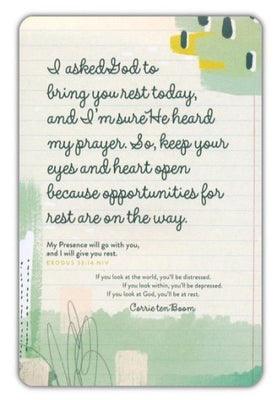 I asked God to
bring you rest today,
and I'm sure He heard
my prayer. So, keep your
eyes and heart open
because opportunities for
rest are on the way.
My Presence will go with you,
and I will give you rest.
EXODUS 33:14 NIV
If you look at the world, you'll be distressed.
If you look within, you'll be depressed.
If you look at God, you'll be at rest.
Corrie ten Boom